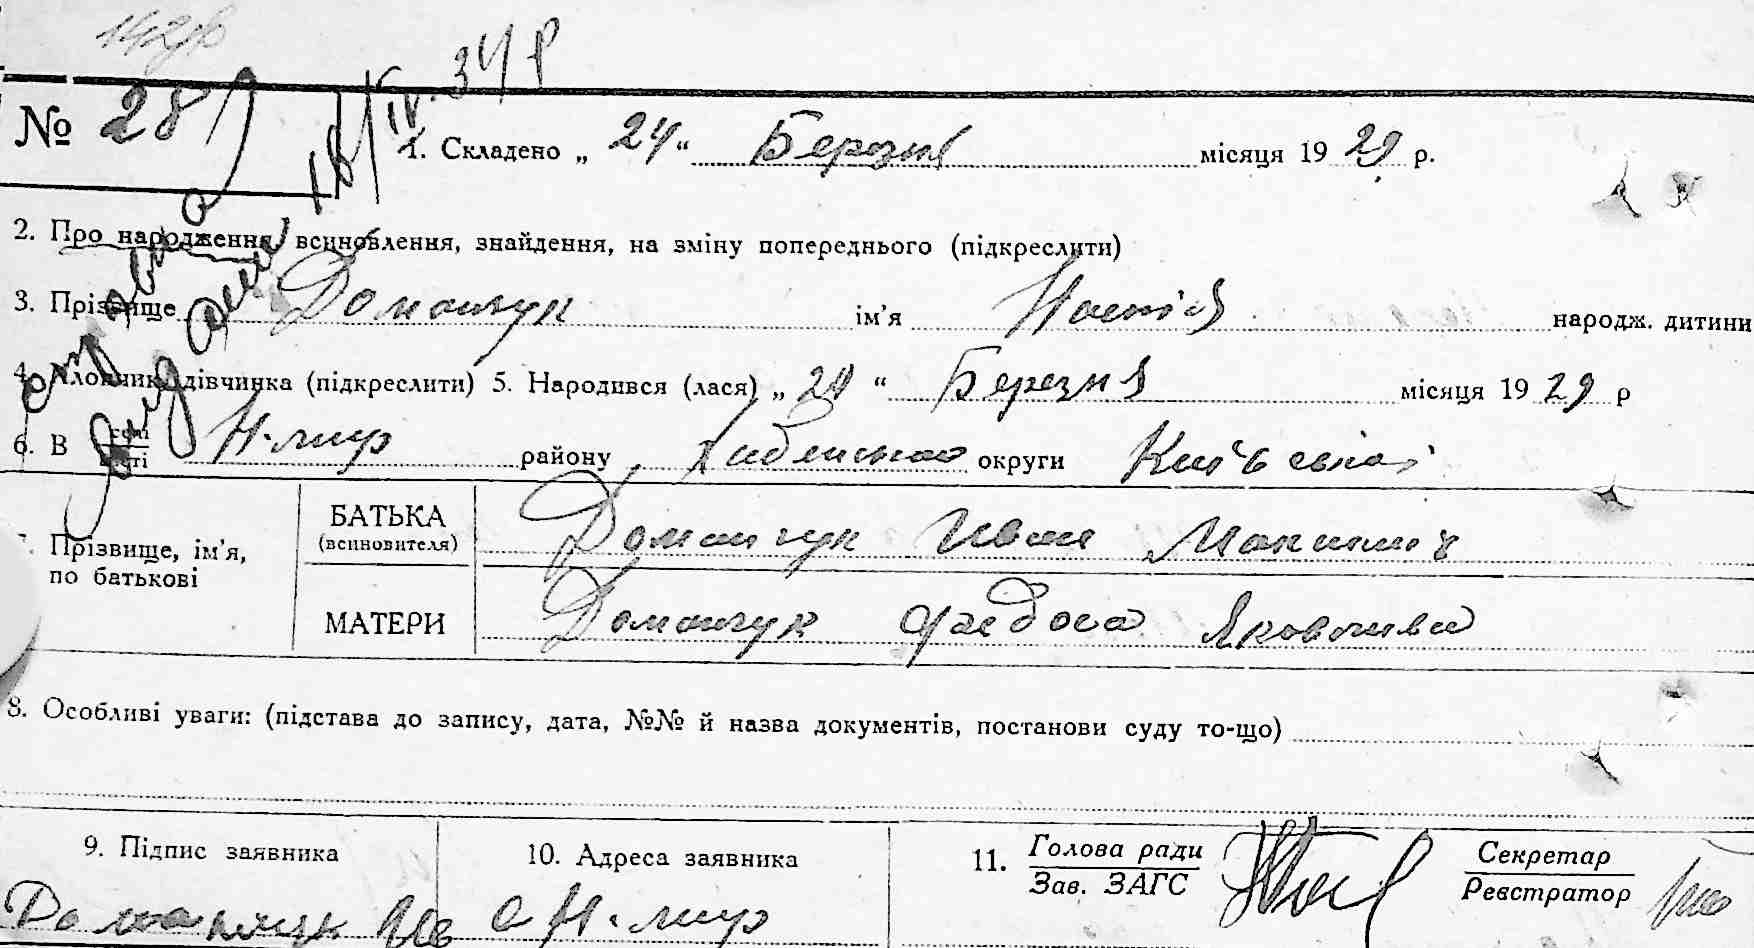 № 28
1. Складено „ 24 “ Березня місяця 19 29 р.
2. Про народження, всиновлення, знайдення, на зміну попереднього (підкреслити)
3. Прізвище Доманчук ім’я народж. дитини
4. Хлопчик, дівчинка (підкреслити) 5. Народився (лася) „ “ Березня місяця 19 29 р
6. В селі місті Н-мир району округи Київської
7. Прізвище, ім’я, по батькові
БАТЬКА (всиновителя) Доманчук Иван
МАТЕРИ Доманчук Федоса Яковливна
8. Особливі уваги: (підстава до запису, дата, №№ й назва документів, постанови суду то-що)
9. Підпис заявника
10. Адреса заявника
11. Голова ради Зав. ЗАГС
Секретар Реєстратор
Доманчук Ив
с Н-мир